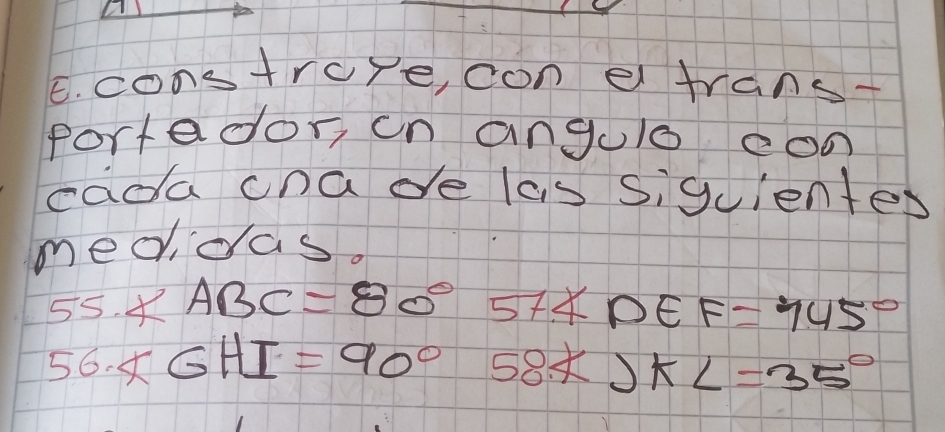 E. constrcye, con el trans-
portador, cn angulo con
cada cna de las siguientes
medidas.
55. ∢ ABC = 80° 57. ∢ DEF = 145°
56. ∢ GHI = 90° 58. ∢ JKL = 35°